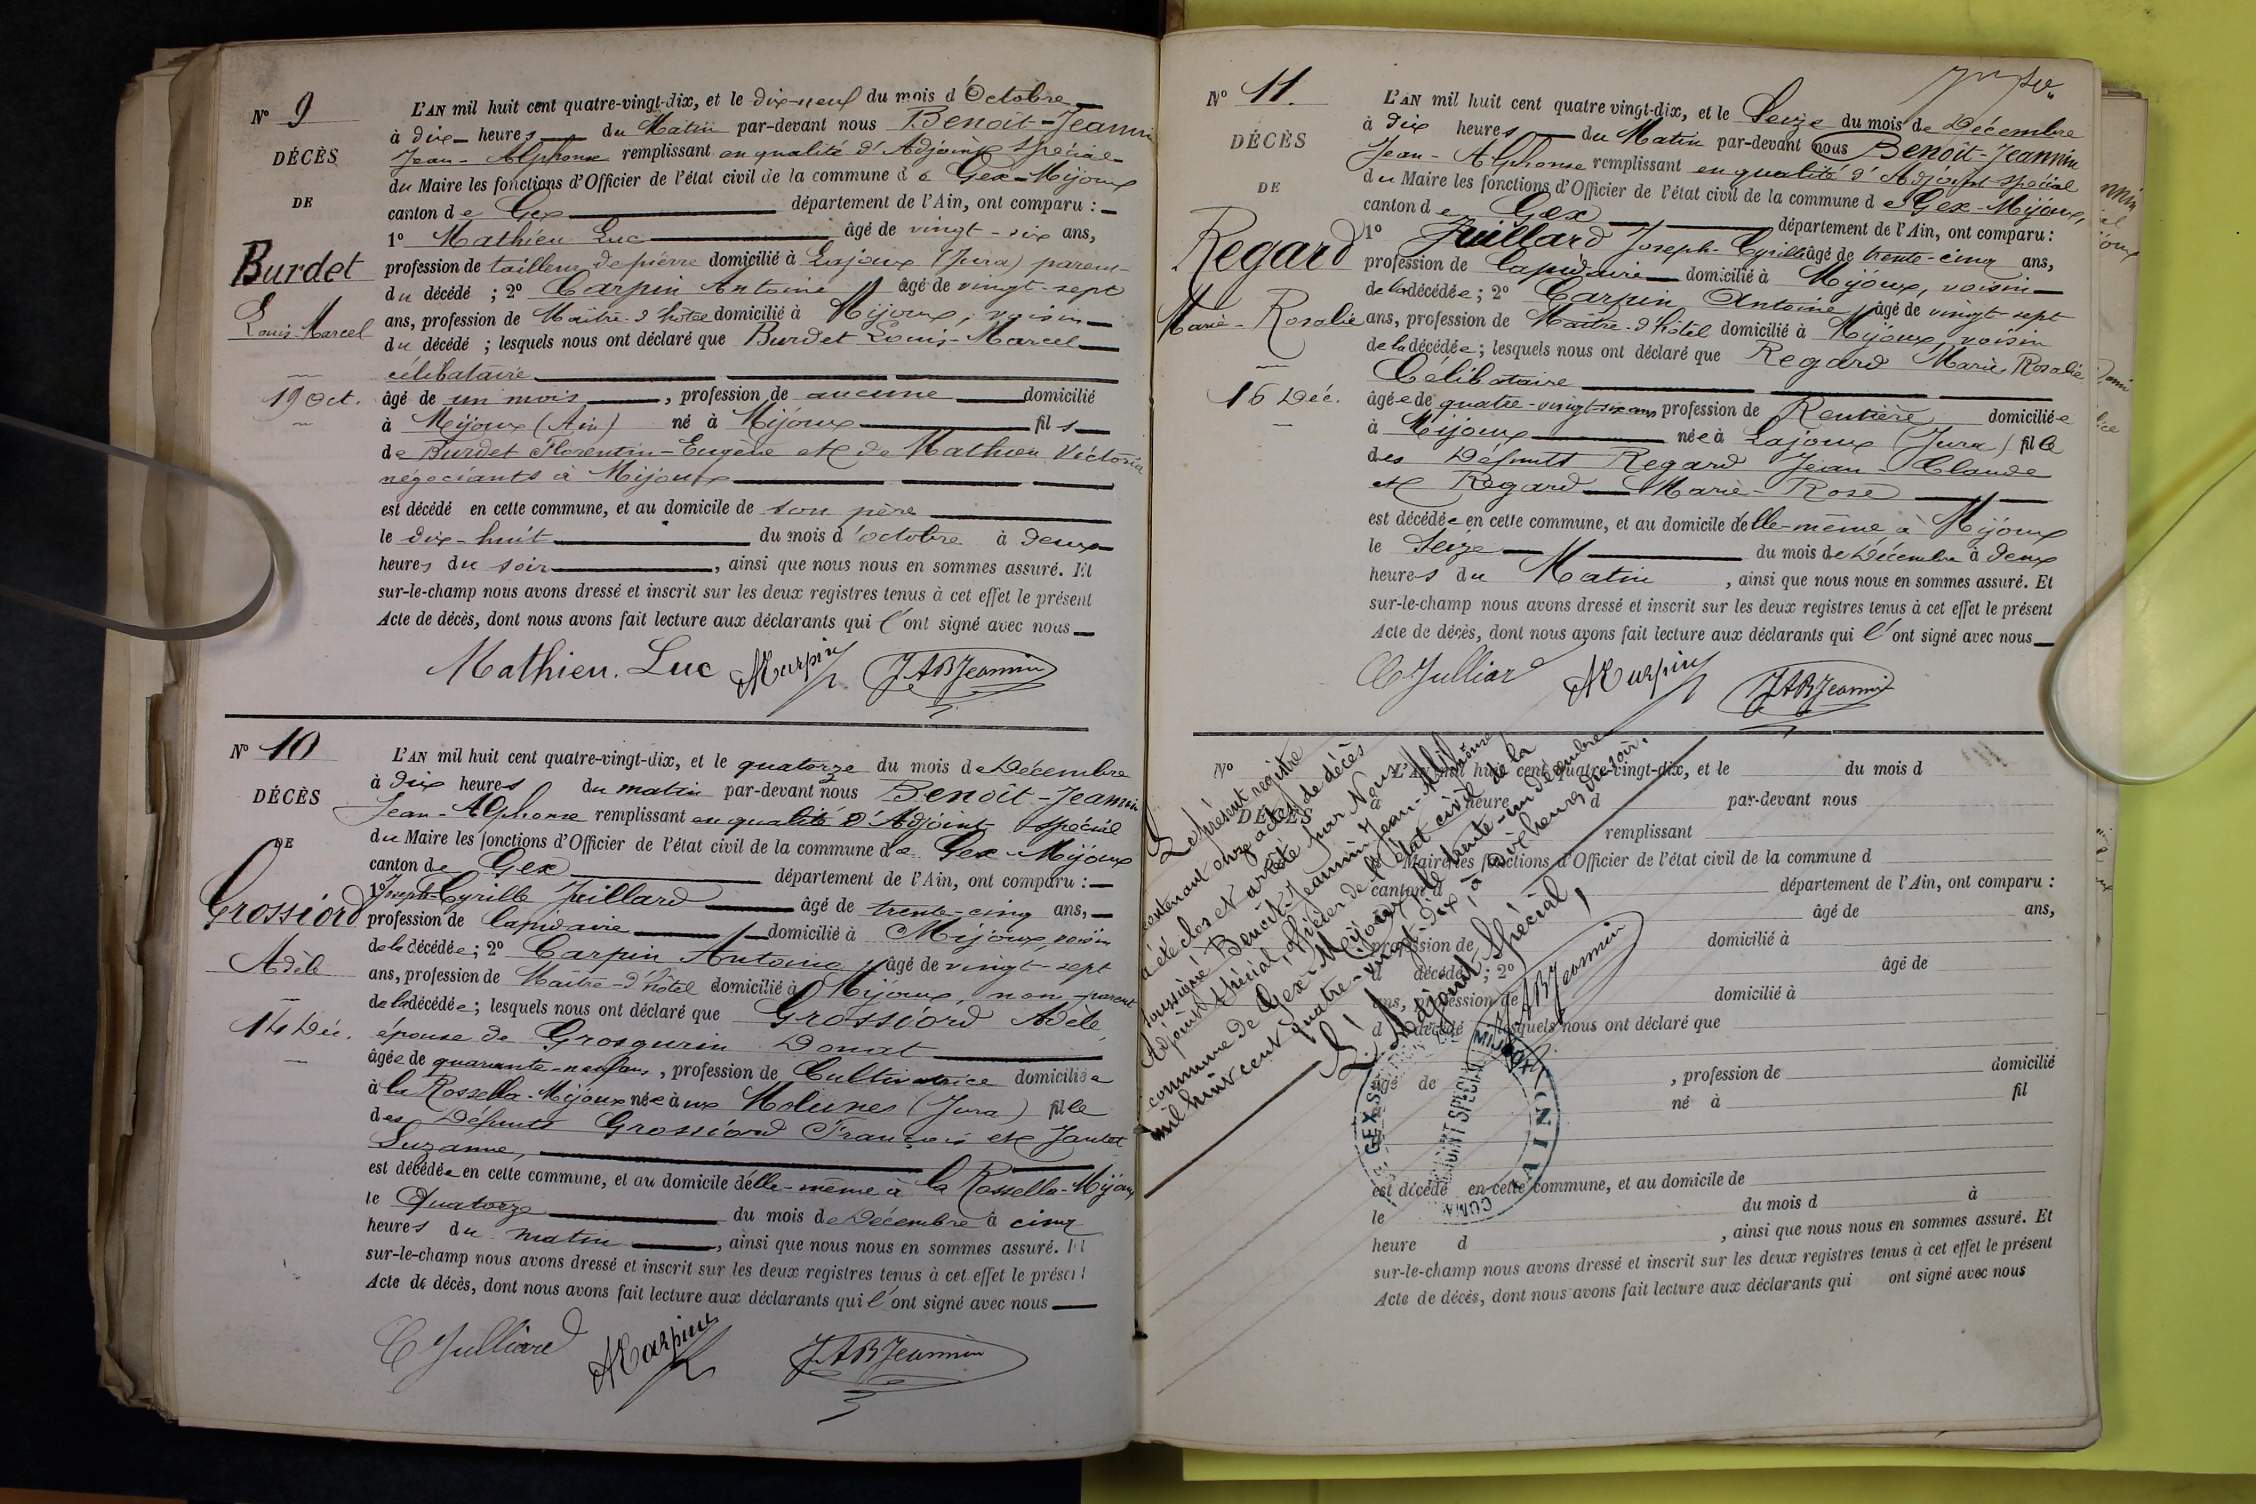 N° 9
DÉCÈS
DE
Burdet
Louis-Marcel
19 Oct.
L'AN mil huit cent quatre-vingt-dix, et le dix-neuf du mois d'Octobre
à dix heures du Matin par-devant nous Benoît-Jeannin
Jean-Alphonse remplissant en qualité d'Adjoint spécial
du Maire les fonctions d'Officier de l'état civil de la commune de Gex-Mijoux
canton de Gex département de l'Ain, ont comparu :
1° Mathieu Luc âgé de vingt-six ans,
profession de tailleur de pierre domicilié à Lajoux (Jura) parent
du décédé ; 2° Carpin Antoine âgé de vingt-sept
ans, profession de Maître-d'hôtel domicilié à Mijoux, voisin
du décédé ; lesquels nous ont déclaré que Burdet Louis-Marcel
célibataire
âgé de un mois, profession de aucune domicilié
à Mijoux (Ain) né à Mijoux fils
de Burdet Florentin-Eugène et de Mathieu Victoria
négociants à Mijoux
est décédé en cette commune, et au domicile de son père
le dix-huit du mois d'octobre à deux
heures du soir, ainsi que nous nous en sommes assuré. Et
sur-le-champ nous avons dressé et inscrit sur les deux registres tenus à cet effet le présent
Acte de décès, dont nous avons fait lecture aux déclarants qui l'ont signé avec nous
Mathieu. Luc ACarpin JABJeannin
N° 10
DÉCÈS
DE
Grossiord
Adèle
14 Déc.
L'AN mil huit cent quatre-vingt-dix, et le quatorze du mois de Décembre
à dix heures du matin par-devant nous Benoît-Jeannin
Jean-Alphonse remplissant en qualité d'Adjoint spécial
du Maire les fonctions d'Officier de l'état civil de la commune de Gex-Mijoux
canton de Gex département de l'Ain, ont comparu :
1° Joseph-Cyrille Juillard âgé de trente-cinq ans,
profession de Lapidaire domicilié à Mijoux, voisin
de la décédée ; 2° Carpin Antoine âgé de vingt-sept
ans, profession de Maître-d'hôtel domicilié à Mijoux, non-parent
de la décédée ; lesquels nous ont déclaré que Grossiord Adèle
épouse de Grosgurin Donat
âgée de quarante-neuf ans, profession de Cultivatrice domiciliée
à la Rossella-Mijoux née aux Molunes (Jura) fille
des Défunts Grossiord François et Jantet
Suzanne,
est décédée en cette commune, et au domicile d'elle-même à la Rossella-Mijoux
le Quatorze du mois de Décembre à cinq
heures du matin, ainsi que nous nous en sommes assuré. Et
sur-le-champ nous avons dressé et inscrit sur les deux registres tenus à cet effet le présent
Acte de décès, dont nous avons fait lecture aux déclarants qui l'ont signé avec nous
C Julliard ACarpin JABJeannin
N° 11.
DÉCÈS
DE
Regard
Marie-Rosalie
16 Déc.
L'AN mil huit cent quatre vingt-dix, et le Seize du mois de Décembre
à dix heures du Matin par-devant nous Benoît-Jeannin
Jean-Alphonse remplissant en qualité d'Adjoint spécial
du Maire les fonctions d'Officier de l'état civil de la commune de Gex-Mijoux,
canton de Gex département de l'Ain, ont comparu :
1° Juillard Joseph-Cyrille âgé de trente-cinq ans,
profession de Lapidaire domicilié à Mijoux, voisin
de la décédée ; 2° Carpin Antoine âgé de vingt-sept
ans, profession de Maître-d'hôtel domicilié à Mijoux, voisin
de la décédée ; lesquels nous ont déclaré que Regard Marie Rosalie
Célibataire
âgée de quatre-vingt-six ans profession de Rentière domiciliée
à Mijoux née à Lajoux (Jura) fille
des Défunts Regard Jean-Claude
et Regard Marie-Rose
est décédée en cette commune, et au domicile d'elle-même à Mijoux
le Seize du mois de Décembre à deux
heures du Matin, ainsi que nous nous en sommes assuré. Et
sur-le-champ nous avons dressé et inscrit sur les deux registres tenus à cet effet le présent
Acte de décès, dont nous avons fait lecture aux déclarants qui l'ont signé avec nous
C Julliard ACarpin JABJeannin
N°
DÉCÈS
L'AN mil huit cent quatre-vingt-dix, et le du mois d
à heure d par-devant nous
remplissant
Maire les fonctions d'Officier de l'état civil de la commune d
canton d département de l'Ain, ont comparu :
âgé de ans,
profession de domicilié à
d décédé ; 2° âgé de
ans, profession de domicilié à
d décédé lesquels nous ont déclaré que
âgé de , profession de domicilié
né à fil
est décédé en cette commune, et au domicile de
le du mois d à
heure d , ainsi que nous nous en sommes assuré. Et
sur-le-champ nous avons dressé et inscrit sur les deux registres tenus à cet effet le présent
Acte de décès, dont nous avons fait lecture aux déclarants qui ont signé avec nous
Le présent registre
contenant onze actes de décès
a été clos et arrêté par Nous
soussigné Benoît-Jeannin Jean-Alphonse
Adjoint spécial, officier de l'état civil de la
commune de Gex-Mijoux, le trente-un décembre
mil huit cent quatre-vingt-dix, à six heures du soir.
L'Adjoint Spécial,
JABJeannin
MIJOUX
ADJOINT SPÉCIAL
GEX
AIN